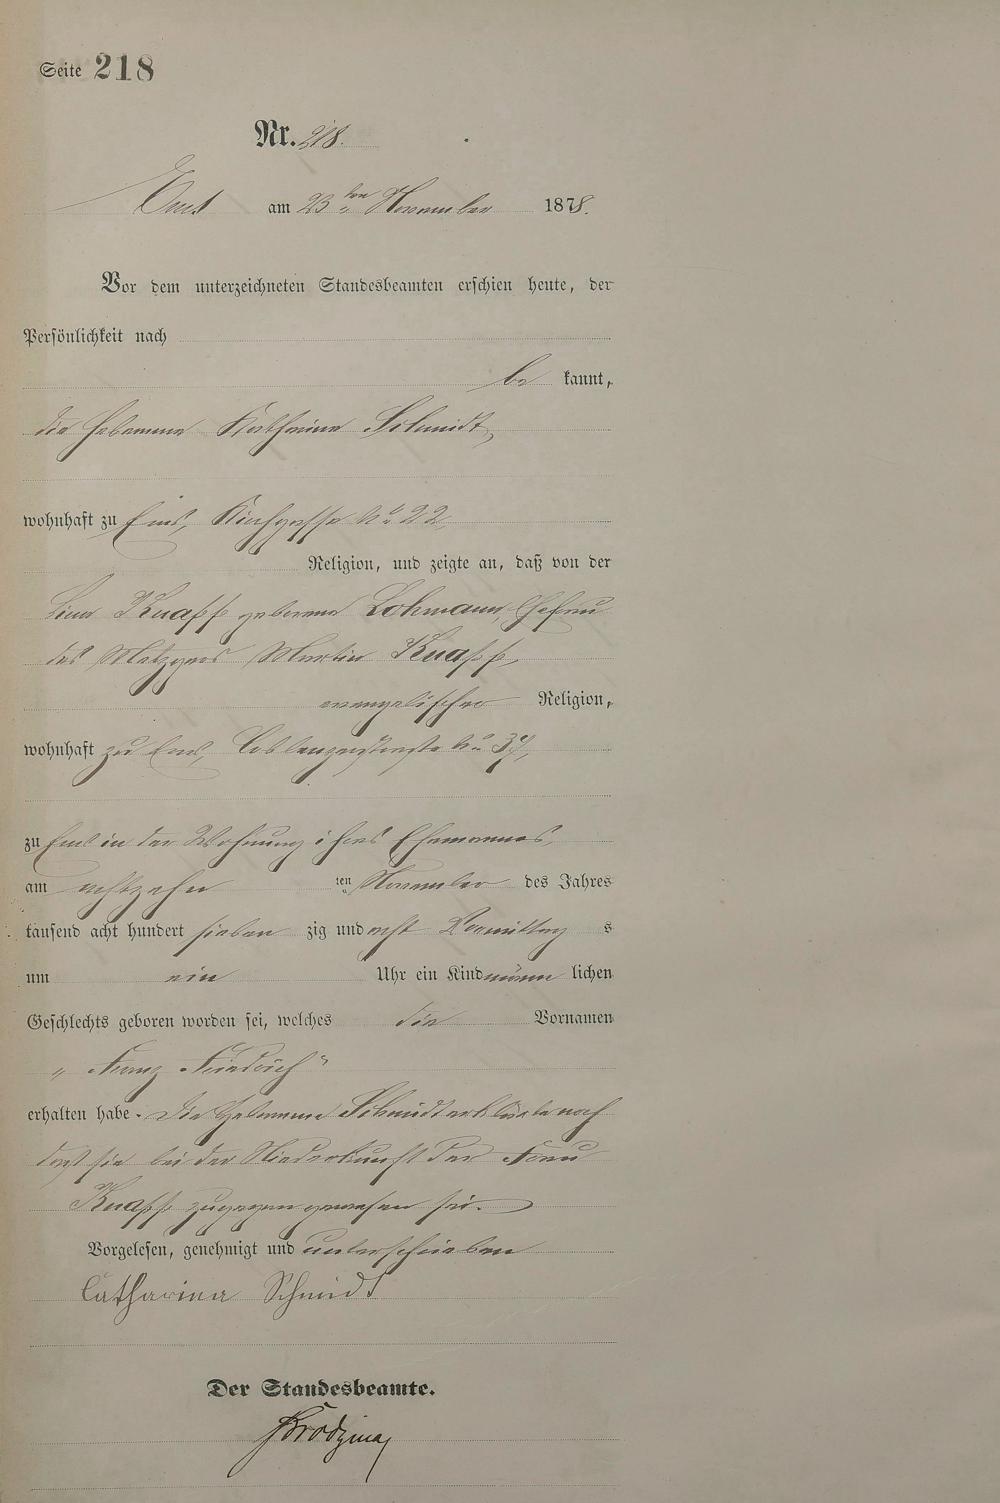 Seite 218
Nr. 218.
Ems am 23ten November 1878.
Vor dem unterzeichneten Standesbeamten erschien heute, der
Persönlichkeit nach
be kannt,
die Hebamme Katharina Schmidt,
wohnhaft zu Ems, Kirchgasse No 22,
Religion, und zeigte an, daß von der
Lina Knapp geborene Lohmann, Ehefrau
des Metzgers Martin Knapp,
evangelischer Religion,
wohnhaft zu Ems, Coblenzerstraße No 37,
zu Ems in der Wohnung ihres Ehemannes,
am achtzehn ten November des Jahres
tausend acht hundert sieben zig und acht Vormittag s
um ein Uhr ein Kind männ lichen
Geschlechts geboren worden sei, welches die Vornamen
„Franz Friedrich“
erhalten habe. Die Hebamme Schmidt erklärte noch
daß sie bei der Niederkunft der Frau
Knapp zugegen gewesen sei.
Vorgelesen, genehmigt und unterschrieben
Catharina Schmidt
Der Standesbeamte.